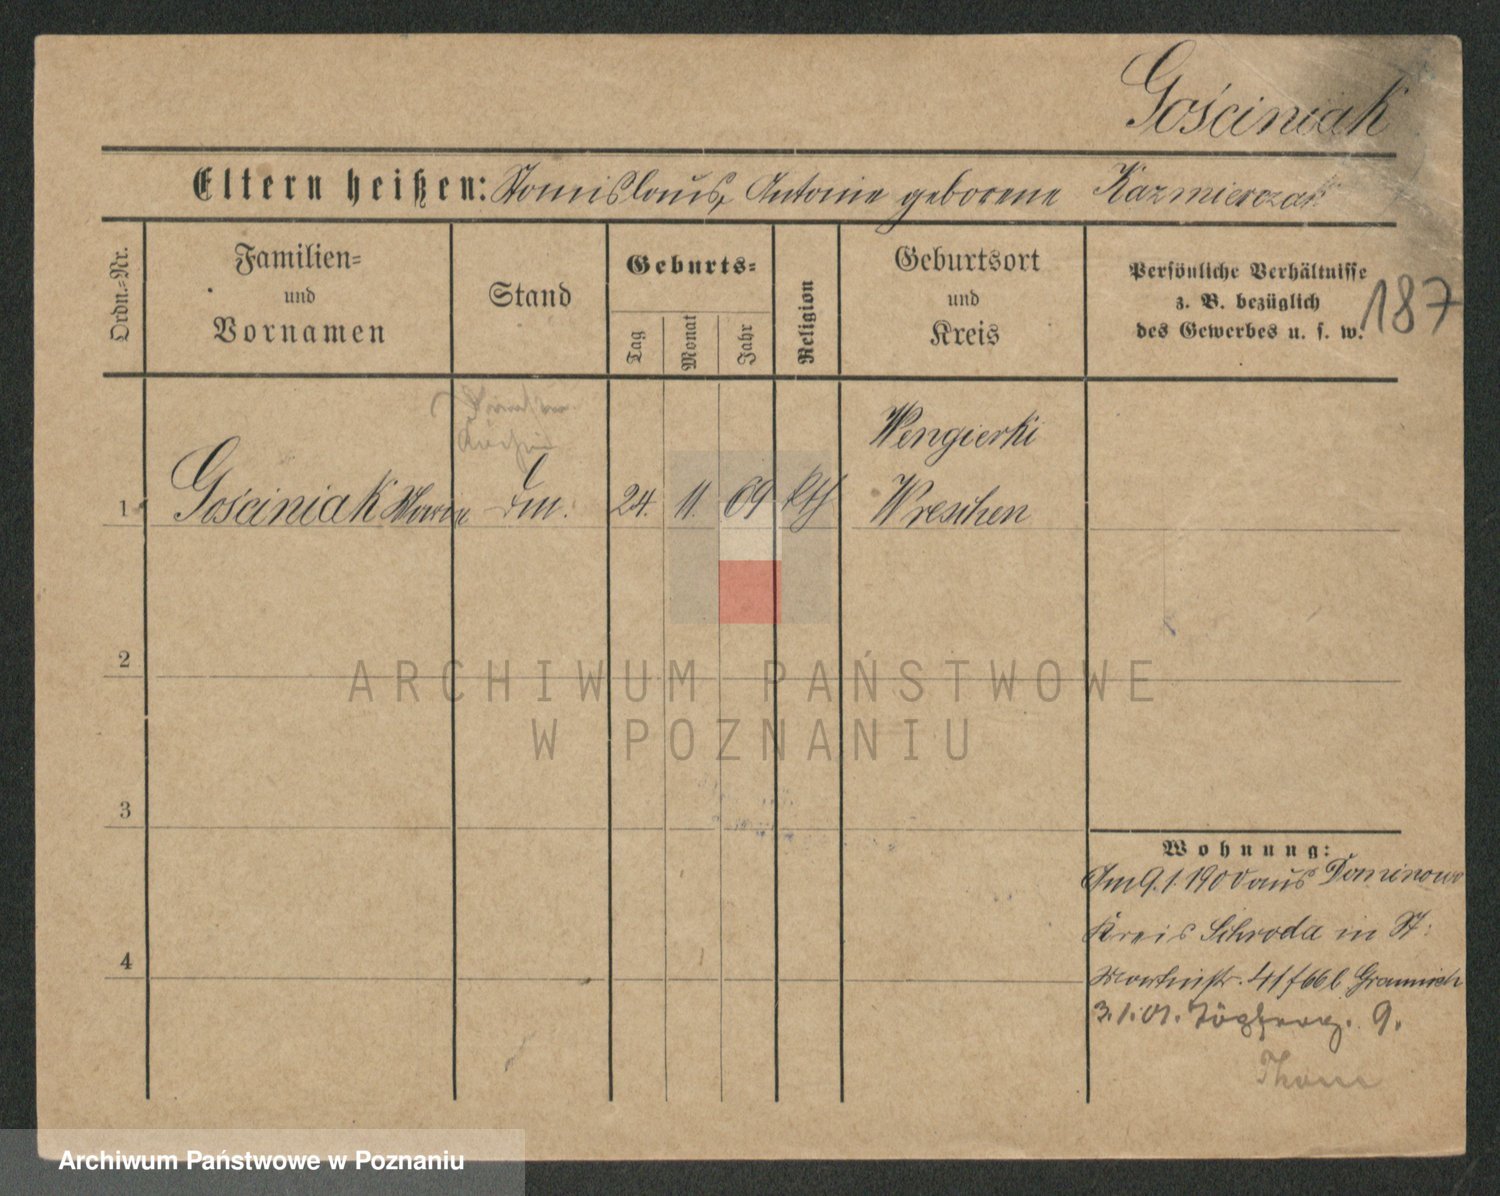 Gościniak
Eltern heißen: Stanislaus, Antonie geborene Kazmierczak
Ordn.-Nr.
Familien- und Vornamen
Stand
Geburts-
Tag
Monat
Jahr
Religion
Geburtsort und Kreis
Persönliche Verhältnisse
z. B. bezüglich
des Gewerbes u. s. w.
187
Wengierki
1 Gościniak 24. 11. 69 kth Wreschen
2
3
4
Wohnung:
Am 9.1.1900 aus Dominowo
Kreis Schroda in St:
Martinstr. 41
3.1.01. 9.
ARCHIWUM PAŃSTWOWE
W POZNANIU
Archiwum Państwowe w Poznaniu